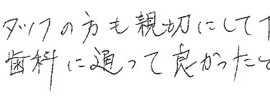 タッフの方も親切にして
歯科に通って良かったと